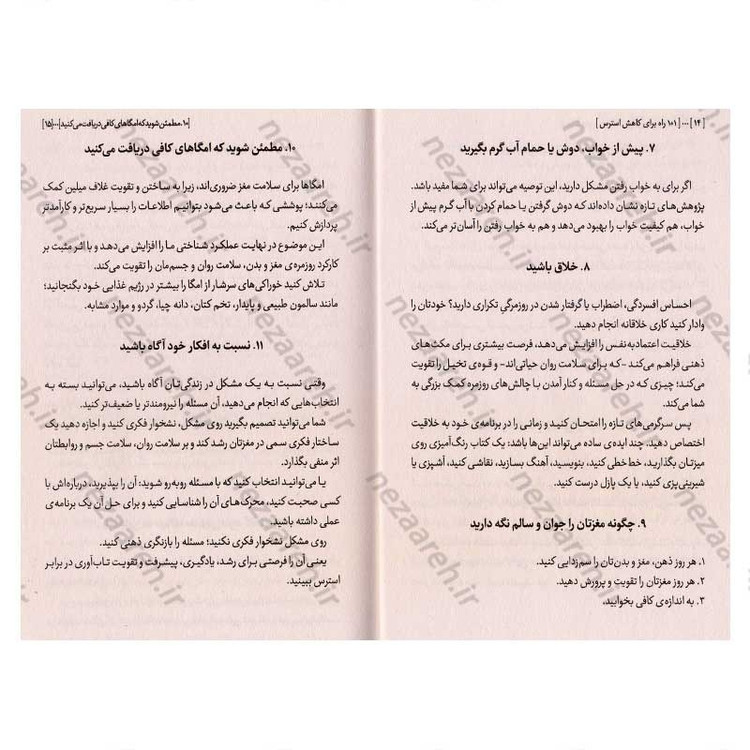 [ ۱۴ ] ... [ ۱۰۱ راه برای کاهش استرس ]
۷. پیش از خواب، دوش یا حمام آب گرم بگیرید
اگر برای به خواب رفتن مشکل دارید، این توصیه می‌تواند برای شما مفید باشد.
پژوهش‌های تازه نشان داده‌اند که دوش گرفتن یا حمام کردن با آب گرم پیش از
خواب، هم کیفیت خواب را بهبود می‌دهد و هم به خواب رفتن را آسان‌تر می‌کند.
۸. خلاق باشید
احساس افسردگی، اضطراب یا گرفتار شدن در روزمرگیِ تکراری دارید؟ خودتان را
وادار کنید کاری خلاقانه انجام دهید.
خلاقیت اعتمادبه‌نفس را افزایش می‌دهد، فرصت بیشتری برای مکث‌های
ذهنی فراهم می‌کند -که برای سلامت روان حیاتی‌اند- و قوه‌ی تخیل را تقویت
می‌کند؛ چیزی که در حل مسئله و کنار آمدن با چالش‌های روزمره کمک بزرگی به
شما می‌کند.
پس سرگرمی‌های تازه را امتحان کنید و زمانی را در برنامه‌ی خود به خلاقیت
اختصاص دهید. چند ایده‌ی ساده می‌تواند این‌ها باشد: یک کتاب رنگ‌آمیزی روی
میزتان بگذارید، خط‌خطی کنید، بنویسید، آهنگ بسازید، نقاشی کنید، آشپزی یا
شیرینی‌پزی کنید، یا یک پازل درست کنید.
۹. چگونه مغزتان را جوان و سالم نگه دارید
۱. هر روز ذهن، مغز و بدن‌تان را سم‌زدایی کنید.
۲. هر روز مغزتان را تقویت و پرورش دهید.
۳. به اندازه‌ی کافی بخوابید.
[۱۰. مطمئن شوید که امگاهای کافی دریافت می‌کنید] ... [۱۵]
۱۰. مطمئن شوید که امگاهای کافی دریافت می‌کنید
امگاها برای سلامت مغز ضروری‌اند، زیرا به ساختن و تقویت غلاف میلین کمک
می‌کنند؛ پوششی که باعث می‌شود بتوانیم اطلاعات را بسیار سریع‌تر و کارآمدتر
پردازش کنیم.
این موضوع در نهایت عملکرد شناختی ما را افزایش می‌دهد و با اثر مثبت بر
کارکرد روزمره‌ی مغز و بدن، سلامت روان و جسم‌مان را تقویت می‌کند.
تلاش کنید خوراکی‌های سرشار از امگا را بیشتر در رژیم غذایی خود بگنجانید؛
مانند سالمون طبیعی و پایدار، تخم کتان، دانه چیا، گردو و موارد مشابه.
۱۱. نسبت به افکار خود آگاه باشید
وقتی نسبت به یک مشکل در زندگی‌تان آگاه باشید، می‌توانید بسته به
انتخاب‌هایی که انجام می‌دهید، آن مسئله را نیرومندتر یا ضعیف‌تر کنید.
شما می‌توانید تصمیم بگیرید روی مشکل، نشخوار فکری کنید و اجازه دهید یک
ساختار فکری سمی در مغزتان رشد کند و بر سلامت روان، سلامت جسم و روابطتان
اثر منفی بگذارد.
یا می‌توانید انتخاب کنید که با مسئله روبه‌رو شوید: آن را بپذیرید، درباره‌اش با
کسی صحبت کنید، محرک‌های آن را شناسایی کنید و برای حل آن یک برنامه‌ی
عملی داشته باشید.
روی مشکل نشخوار فکری نکنید؛ مسئله را بازنگری ذهنی کنید.
یعنی آن را فرصتی برای رشد، یادگیری، پیشرفت و تقویت تاب‌آوری در برابر
استرس ببینید.
nezaareh.ir